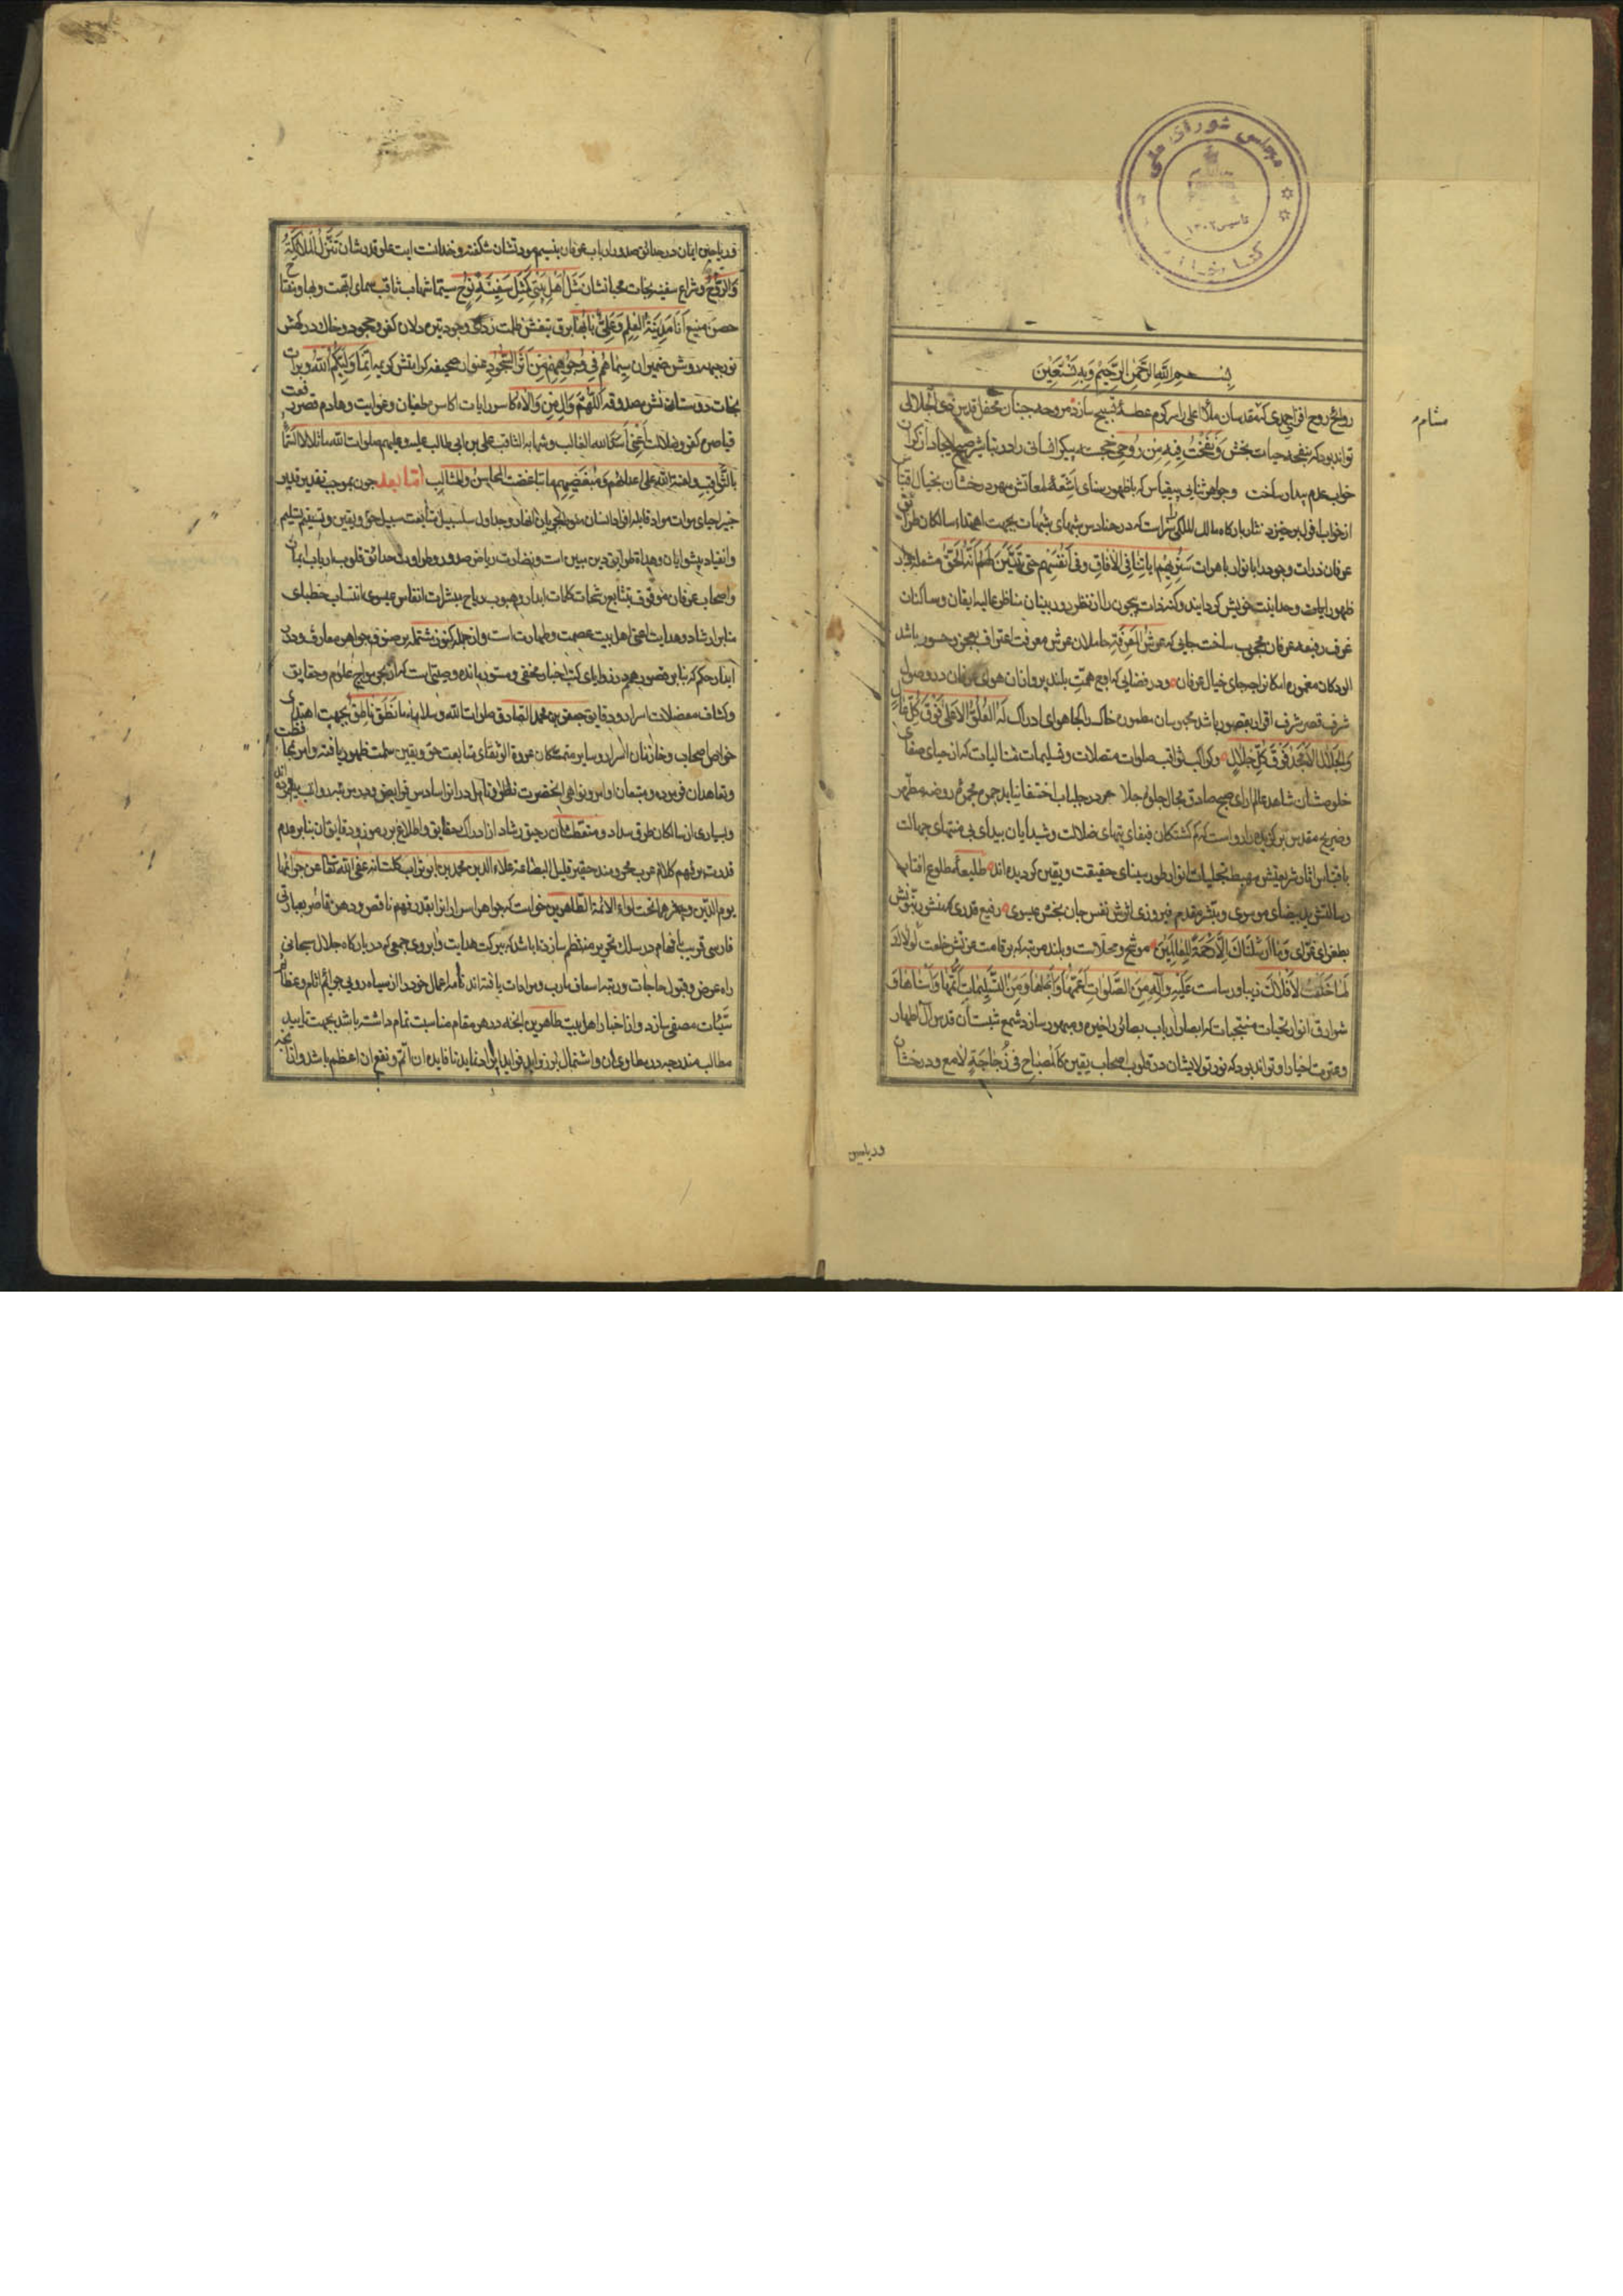 مجلس شورای ملی
تاسیس ۱۳۰۲
کتابخانه
بسم الله الرحمن الرحیم وبه نستعین
روایح روح افزای حمدی که مقدسان ملأ اعلی را سرکرم عطسهٔ تسبیح سازد مروحه جنبان محفل قدس ذی الجلالی
مشام
تواند بود که بنفحه حیات بخش وَنَفَخْتُ فِیهِ مِنْ رُوحِی خجسته پیکر انسانی را در تباشیر صبح ایجاد از کران
خواب عدم بیدار ساخت وجواهر ثنایی بیقیاس که با ظهور سنای اشعهٔ لمعاتش مهر درخشان بخیال اقتباس
از خواب افول برخیزد نثار بارکاه مالک الملکی سزاست که در حنادس شبهای شبهات بجهت اهتداء سالکان طرایق
عرفان ذرات وجود را بانوار باهرات سَنُرِیهِمْ اٰیَاتِنَا فِی الْاٰفَاقِ وَفِی اَنْفُسِهِمْ حَتّٰی یَتَبَیَّنَ لَهُمْ اَنَّهُ الْحَقُّ مشعله
ظهور ایات وحدانیت خویش کردانید وکنه ذات بیچون را از نظر دوربینان مناظر عالیه ایقان وساکنان
غرف رفیعه عرفان محجوب ساخت جایی که عرش المعرفة حاملان عرش معرفت اعتراف بعجز وحسور باشد
الودکان مغموره امکان را چه جای خیال عرفان ودر فضایی که اوج همت بلند پروازان هوای عرفان در وصول
شرف قصر شرف اقرار بقصور باشد محبوسان مطموره خاک را کجا هوای ادراک لَهُ الْعُلُوُّ الْاَعْلٰی فَوْقَ کُلِّ عَالٍ
وَالْجَلَالُ الْاَمْجَدُ فَوْقَ کُلِّ جَلَالٍ وکواکب ثواقب صلوات متصلات وتسلیمات متتالیات که از حیای صفای
خلوصشان شاهد عالم ارای صبح صادق مجال جلوه جلا در جلباب اختفا نیابد روضه مطهر
وضریح مقدس برکزیده را رواست که کم کشتکان فیفای تیههای ضلالت وشیدایان بیدای بی منتهای جهالت
باقتباس اثار شریعتش مهبط تجلیات انوار طور سینای حقیقت ویقین کردیده اند طلیعهٔ مطلوع افتاب
رسالتش ید بیضای موسوی ومبشر مقدم فیروزی اثرش نفس جان بخش عیسوی رفیع قدری که منشور نبوتش
بطغرای غرای وَمَا اَرْسَلْنَاکَ اِلَّا رَحْمَةً لِلْعَالَمِینَ موشح ومحلاست وبلند مرتبه که بر قامت عزتش خلعت لَوْلَاکَ
لَمَا خَلَقْتُ الْاَفْلَاکَ زیبا ورساست عَلَیْهِ وَاٰلِهِ مِنَ الصَّلَوَاتِ اَعَمُّهَا وَمِنَ التَّسْلِیمَاتِ اَتَمُّهَا وَاَسْنَاهَا وَ
شوارق انوار تحیات منتجبات که ابصار ارباب بصائر را خیره ومبهور سازد شمع شبستان قدس آل اطهار
وعترت اخیار او تواند بود که نور تولایشان در قلوب اصحاب یقین کَالْمِصْبَاحِ فِی زُجَاجَةٍ لامع ودرخشان
وریاحین
وریاحین ایمان در حدائق صدور ارباب عرفان بنسیم مودتشان شکفته وخندانست ایت علو قدرشان تَنَزَّلُ الْمَلَائِکَةُ
وَالرُّوحُ وشراع سفینه نجات محبانشان مَثَلُ اَهْلِ بَیْتِی کَمَثَلِ سَفِینَةِ نُوحٍ سیما شهاب ثاقب سمای ابهت وبها ومفتاح
حصن منیع اَنَا مَدِینَةُ الْعِلْمِ وَعَلِیٌّ بَابُهَا برق تیغش ظلمت زدای وجود تیره دلان کفر وجحود وخاک درکهش
نور جبهه روشن ضمیران سِیمَاهُمْ فِی وُجُوهِهِمْ مِنْ اَثَرِ السُّجُودِ عنوان صحیفه کرامتش کریمه اِنَّمَا وَلِیُّکُمُ اللّٰهُ وبرات
نجات دوستانش مصدوقه اَللّٰهُمَّ وَالِ مَنْ وَالَاهُ کاسر رایات اکاسر طغیان وغوایت وهادم قصور رفعت
قیاصره کفر وضلالت اَعْنِی اسد الله الغالب وشهابه الثاقب علی بن ابی طالب علیه وعلیهم صلوات الله
ولعنة الله علی اعدائهم ومبغضیهم ما تباغضت المحاسن والمثالب اما بعد چون بموجب تقدیر قدیر
خبیر احیای موات مواد قابله افراد انسان منوط بجریان انهار وجداول سلسبیل متابعت سبیل حق ویقین وتسنیم تسلیم
وانقیاد پیشوایان وهداة طرایق دین مبین است ونضارت ریاض صدور وطراوت حدائق قلوب ارباب ایمان
واصحاب عرفان موقوف بتتابع رشحات کلمات ابدار وهبوب ریاح مبشرات انفاس عیسوی انتساب خطبای
منابر ارشاد وهدایت اعنی اهل بیت عصمت وطهارت است واز جمله کنوز مشتمله بر صنوف جواهر معارف ودرر
ابدار حکم که بنابر قصور همم در زوایای کتب اخبار مختفی ومستور مانده وصیتی است که از بحر مواج علوم وحقایق
وکشاف معضلات اسرار ودقایق جعفر بن محمد الصادق صلوات الله وسلامه علیه ما نَطَقَ نَاطِقٌ بجهت اهتدای
خواص اصحاب وخازنان اسرار وسایر متمسکان عروة الوثقای متابعت حق ویقین سمت ظهور یافته وامر بمحافظت
وتعاهد ان فرموده ومتبعان اوامر ونواهی انحضرت نظر وتامل در انرا سادس فرایض ودر مرتبه رواتب
وبسیاری از سالکان طرق سداد ومتعطشان رحیق رشاد از ادراک حقایق واطلاع بر رموز ودقایق ان بنابر عدم
قدرت بر فهم کلام عرب محروم بودند حقیر قلیل البضاعة علاء الدین محمد بن ابو تراب کلستانه عفی الله تعالی عن جرائمهما
یوم الدین وحشرهما تحت لواء الائمة الطاهرین خواست که جواهر اسرار انرا بقدر فهم ناقص وذهن قاصر بعبارتی
فارسی قریب بافهام در سلک تحریر منتظم سازد تا باشد که ببرکت هدایت وابروی جمعی که در بارکاه جلال سبحانی
راه عرض وقبول حاجات ورتبه اسعاف مارب ومرادات یافته اند نامه اعمال خود را از سیاه رویی جرائم اثام وعظائم
سیئات مصفی سازد واز اخبار اهل بیت طاهرین انچه در هر مقام مناسبت تمام داشته باشد بجهت تایید
مطالب مندرجه در مطاوی ان واشتمال بر زواید فواید ایراد نماید تا فایده ان اتم ونفع ان اعظم باشد واز انچه